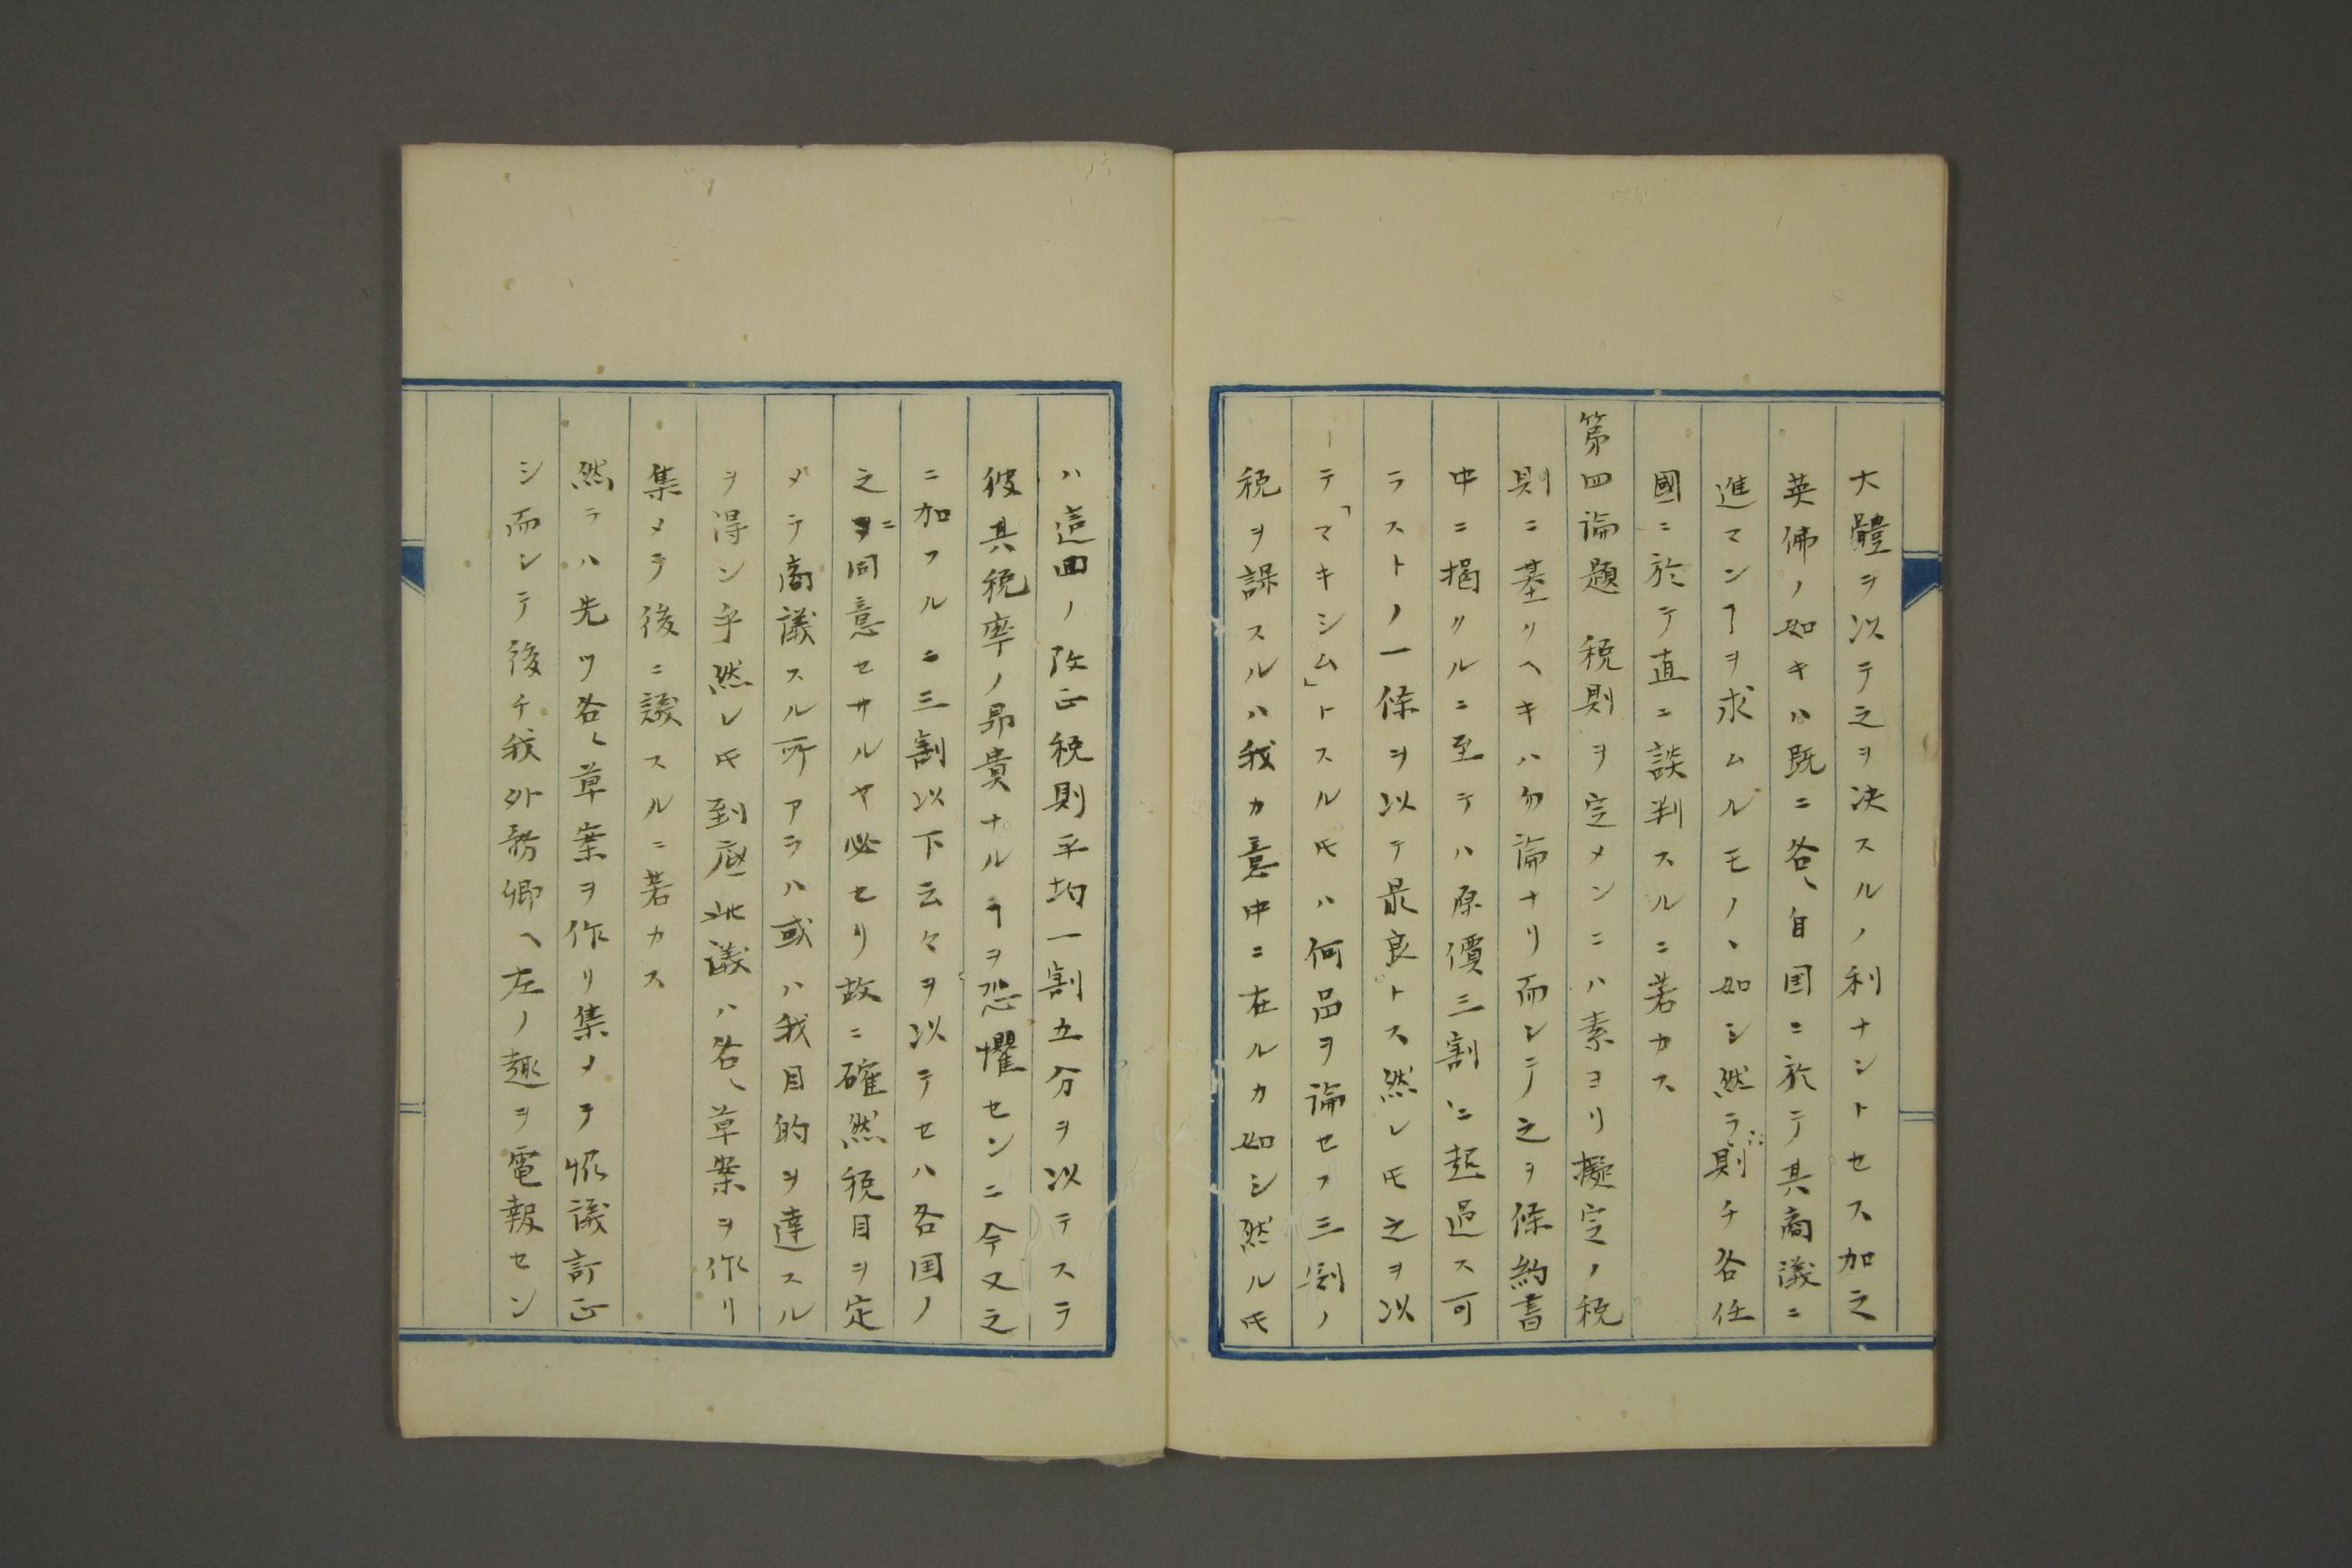 大體ヲ以テ之ヲ决スルノ利ナントセス加之
英佛ノ如キハ既ニ各〻自国ニ於テ其商議ニ
進マンヿヲ求ムルモノヽ如シ然ラハ則チ各任
國ニ於テ直ニ談判スルニ若カス
第四論題 税則ヲ定メンニハ素ヨリ擬定ノ税
則ニ基クヘキハ勿論ナリ而シテ之ヲ條約書
中ニ掲クルニ至テハ原價三割以上ニ超過ス可
ラストノ一條ヲ以テ最良トス然レ𪜈之ヲ以
テ「マキシム」トスル𪜈ハ何品ヲ論セス三割ノ
税ヲ課スルハ我カ意中ニ在ルカ如シ然ル𪜈
ハ這回ノ改正税則平均一割五分ヲ以テスラ
彼其税率ノ昂貴ナルヿヲ恐懼センニ今又之
ニ加フルニ三割以下云々ヲ以テセハ各国ノ
之ニ同意セサルヤ必セリ故ニ確然税目ヲ定
メテ商議スル所アラハ或ハ我目的ヲ達スル
ヲ得ン乎然レ𪜈到底此議ハ各〻草案ヲ作リ
集メテ後ニ議スルニ若カス
然ラハ先ツ各〻草案ヲ作リ集メテ衆議訂正
シ而シテ後チ我外務卿ヘ左ノ趣ヲ電報セン